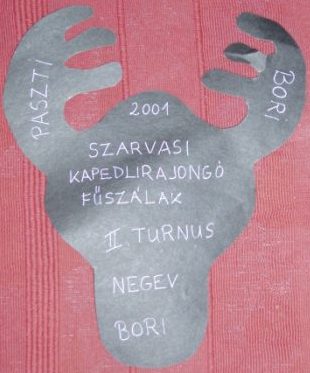 PASZTI
BORI
2001
SZARVASI
KAPEDLIRAJONGÓ
FŰSZÁLAK
II TURNUS
NEGEV
BORI